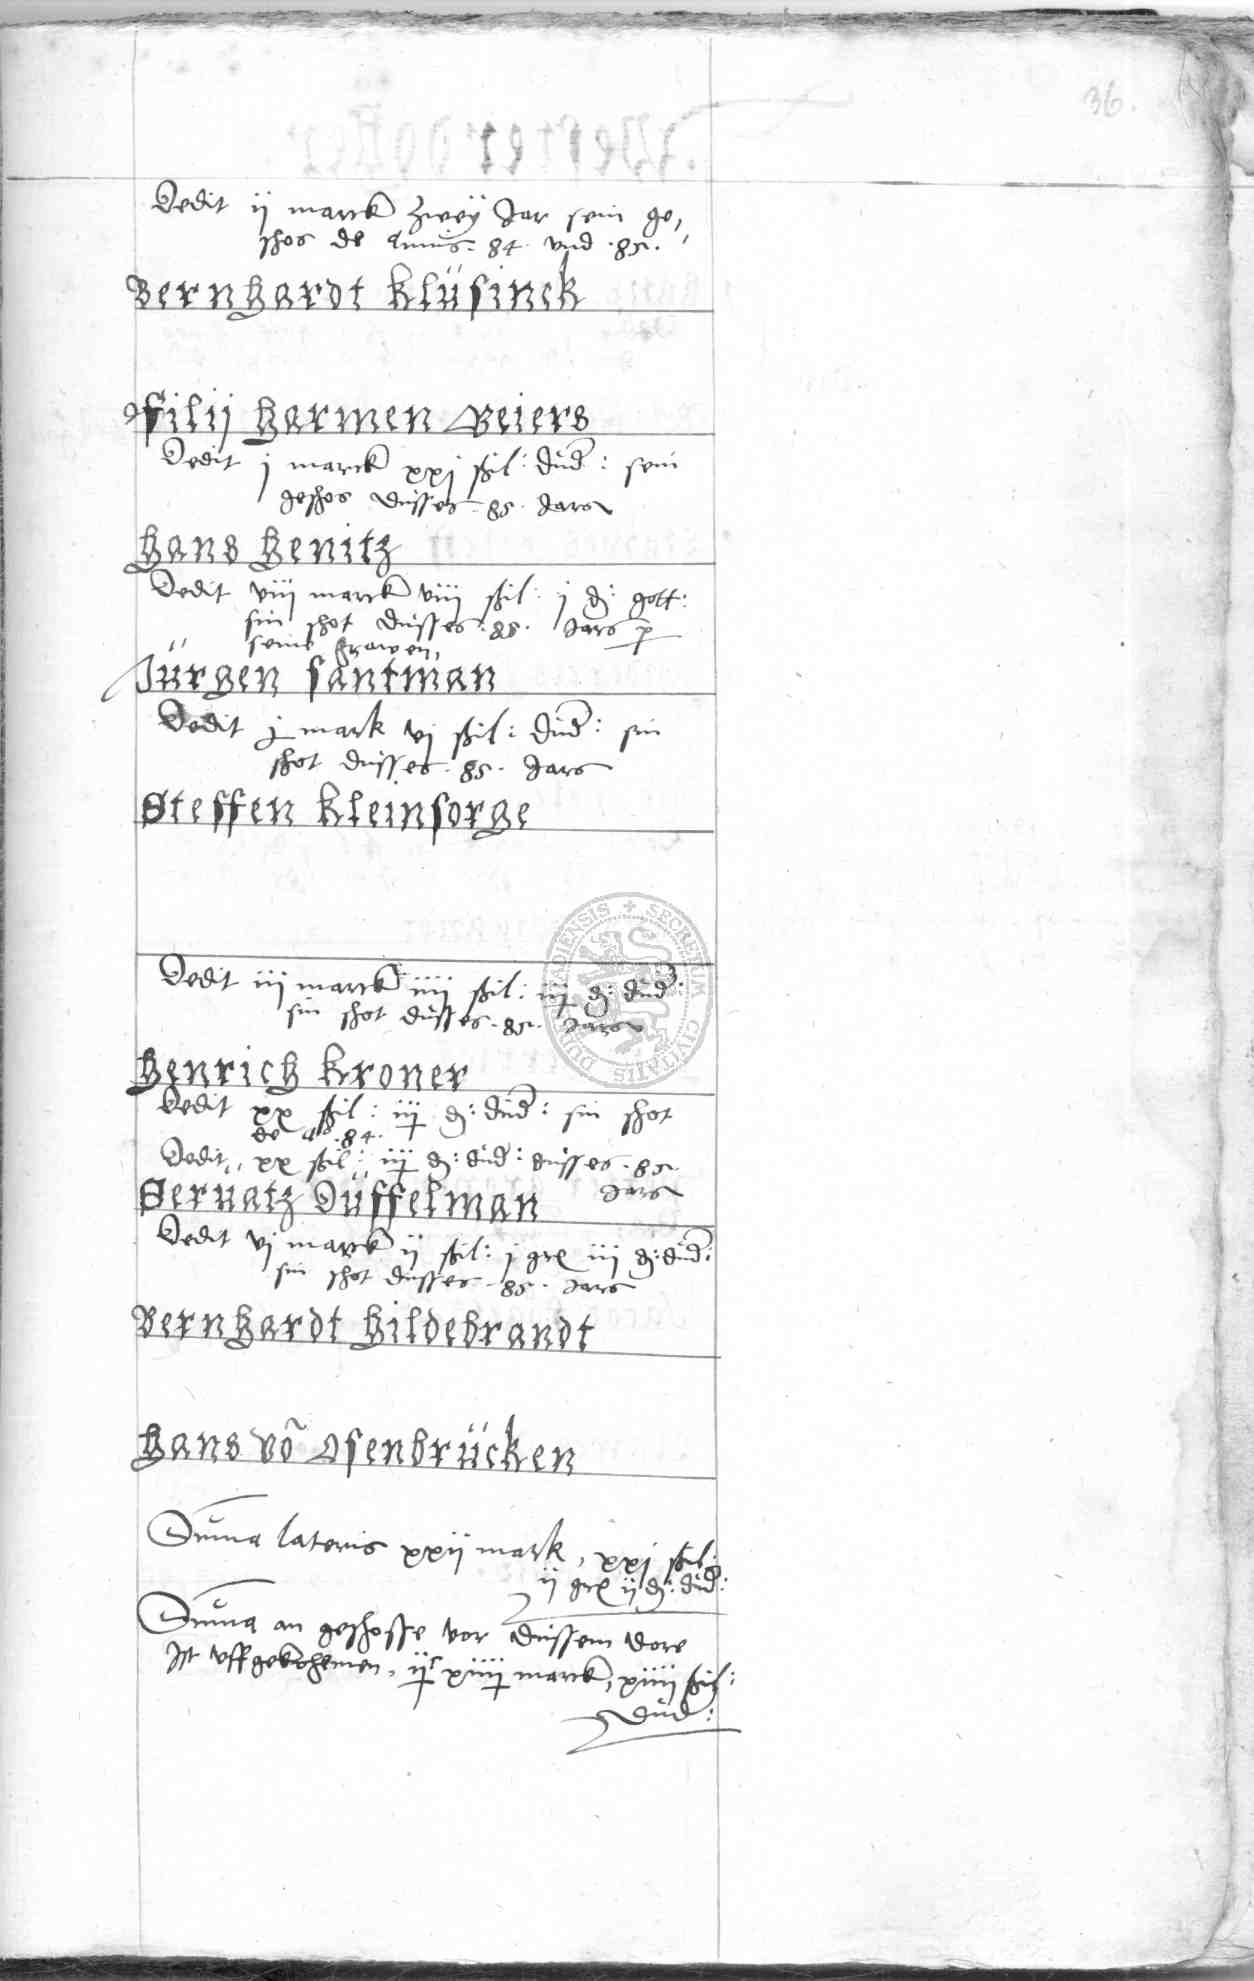 36.
Dedit ij marck zwey Jar sein ge,
schos de annis . 84 . vnd . 85 .
Bernhardt Klüsinck
Filij Harmen Beiers
Dedit j marck xxj ßil: Dud: sein
geschos dusses . 85 . Jars
Hans Henitz
Dedit viij marck viij ßil: j d: gott:
sin schot dusses . 85 . Jars p
seine frawen,
Jürgen Santman
Dedit j mark vj ßil: Dud: sin
schot dusses . 85 . Jars
Steffen Kleinsorge
Dedit iij marck iiij ßil: iij d: dud:
sin schot dusses . 85 . Jars
Henrich Kroner
Dedit xx ßil: iij d: dud: sin schot
de ao . 84 .
Dedit xx ßil: iij d: dud: dusses . 85 .
Jars
Seruatz Düffelman
Dedit vj marck ij ßil: j gr iij d: dud:
sin schot dusses . 85 . Jars
Bernhardt Hildebrandt
Hans võ Osenbrücken
Suma lateris xxij mark, xxj ßil:
ij gr ij d: dud:
Suma an geschosse vor dussem dore
Ist vffgekohemen, ijc xiiij marck, xiiij ßil:
Dud:
SECRETUM CIVITATIS